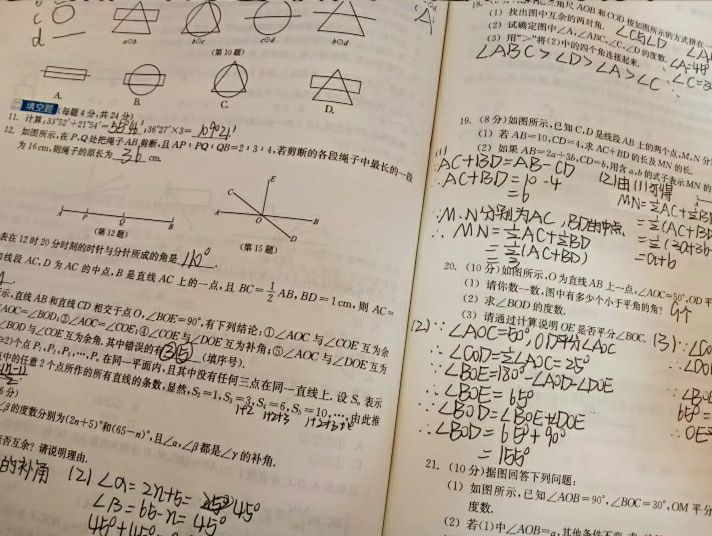 c
d
a⊙b
b⊙c
c⊙d
b⊙d
(第10题)
A.
B.
C.
D.
二 填空题 (每题4分,共24分)
11. 计算:33°52′+21°54′= 55°46′ ;36°27′×3= 109°21′
12. 如图所示,在P,Q处把绳子AB剪断,且AP∶PQ∶QB=2∶3∶4,若剪断的各段绳子中最长的一段
为16cm,则绳子的原长为 36 cm.
A P Q B
(第12题)
E
C
A O B
D
(第15题)
表在12时20分时刻的时针与分针所成的角是 110° .
线段AC,D为AC的中点,B是直线AC上的一点,且BC=1/2AB,BD=1cm,则AC=
示,直线AB和直线CD相交于点O,∠BOE=90°,有下列结论:①∠AOC与∠COE互为余
AOC=∠BOD;③∠AOC=∠COE;④∠COE与∠DOE互为补角;⑤∠AOC与∠DOE互为
∠BOD与∠COE互为余角.其中错误的有 ③⑤ (填序号).
≥2)个点P₁,P₂,P₃,…,Pₙ在同一平面内,且其中没有任何三点在同一直线上.设Sₙ表示
中的任意2个点所作的所有直线的条数,显然,S₂=1,S₃=3,S₄=6,S₅=10,…,由此推
1+2 1+2+3 1+2+3+4
6分)
∠β的度数分别为(2n+5)°和(65-n)°,且∠α,∠β都是∠γ的补角.
否互余?请说明理由.
的补角 (2) ∠α=2n+5= 45°
∠β=65-n=45°
(1) 找出图中互余的两对角. ∠C与∠D
(2) 试确定图中∠A,∠ABC,∠C,∠D的度数. ∠A=45°
(3) 用“>”将(2)中的四个角连接起来.
∠ABC>∠D>∠A>∠C
19. (8分)如图所示,已知C,D是线段AB上的两个点,M,N分
(1) 若AB=10,CD=4,求AC+BD的长及MN的长.
(2) 如果AB=2a+3b,CD=b,用含a,b的式子表示MN的
AC+BD=AB-CD
AC+BD=10-4
=6
(2)由(1)可得
MN=½AC+½B
=½(AC+B
=½(2a+3b-
=a+b
∵M.N分别为AC,BD的中点.
∴MN=½AC+½BD
=½(AC+BD)
20. (10分)如图所示,O为直线AB上一点,∠AOC=50°,OD平
(1) 请你数一数,图中有多少个小于平角的角? 9个
(2) 求∠BOD的度数.
(3) 请通过计算说明OE是否平分∠BOC.
(2)∵∠AOC=50°,OD平分∠AOC
∴∠COD=½∠AOC=25°
∴∠BOE=180°-∠AOD-∠DOE
∴∠BOE=65°
∴∠BOD=∠BOE+∠DOE
∴∠BOD=65°+90°
=155°
(3)
21. (10分)据图回答下列问题:
(1) 如图所示,已知∠AOB=90°,∠BOC=30°,OM平分
度数.
(2) 若(1)中∠AOB=α,其他条件不变,求